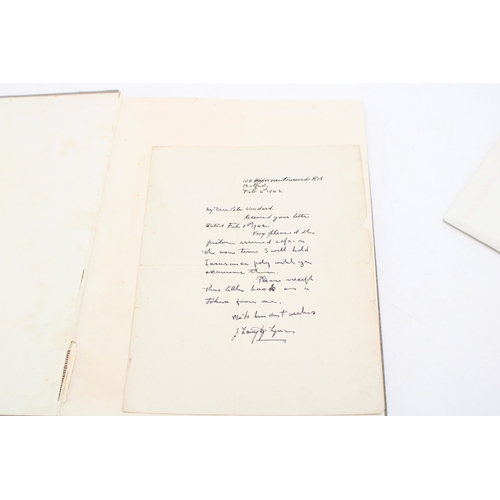 Rd
Belfast.
Feb 2nd 1942
My Dear Peter Woodard.
Received your letter
Dated Feb 1st 1942.
Very pleased the
pictures arrived safe. in
the mean time I will hold
Insurance policy until you
examine them.
Please accept
this little book as a
token from me.
With kindest wishes
J